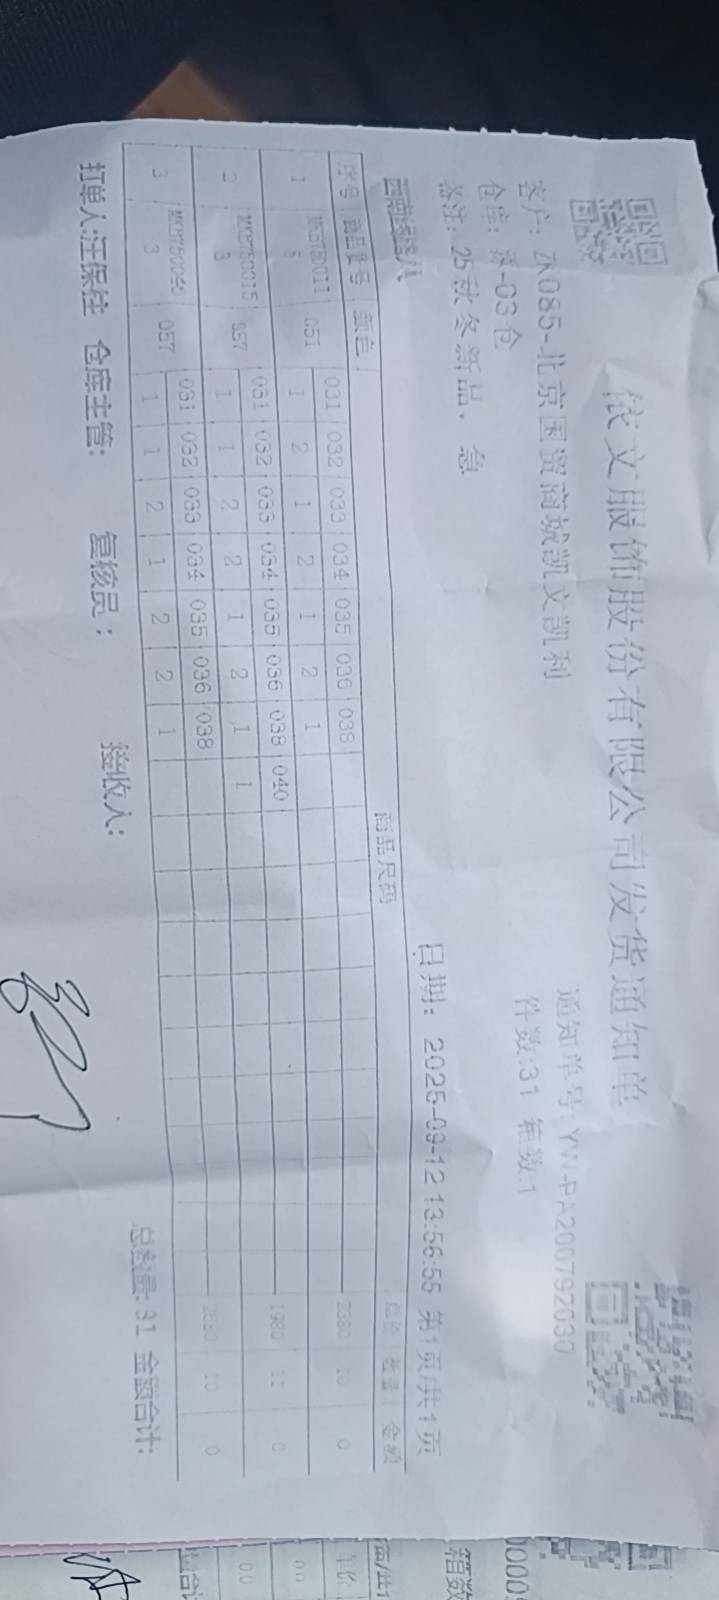 依文服饰股份有限公司发货通知单
客户: ZK085-北京国贸商城凯文凯利
通知单号:YW-PA200792030
件数:31 箱数:1
备注: 25秋冬新品，急
日期: 2025-09-12 13:56:55 第1页/共1页
序号 商品款号 颜色 商品尺码 单价 数量 金额
031 032 033 034 035 036 038
1 051 1 2 1 2 1 2 1 2380 10 0
031 032 033 034 035 036 038 040
2 057 1 1 2 2 1 2 1 1 1980 11 0
031 032 033 034 035 036 038
3 057 1 1 2 1 2 2 1 10 0
总数量: 31 金额合计:
打单人:汪保柱 仓库主管: 复核员: 接收人:
箱数
单价
00
00